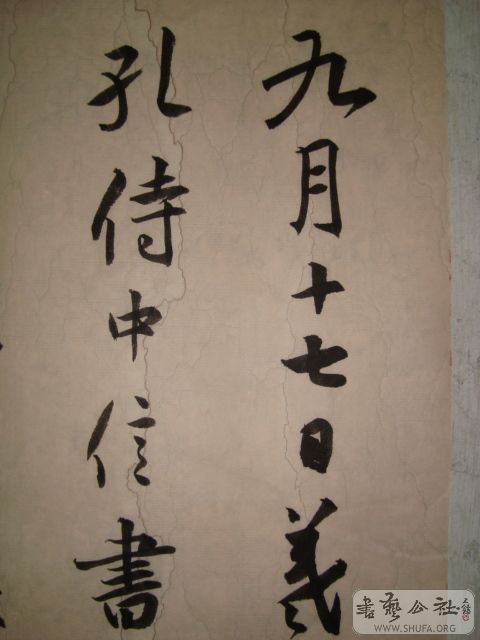 九月十七日羲
孔侍中信書
書藝公社
WWW.SHUFA.ORG